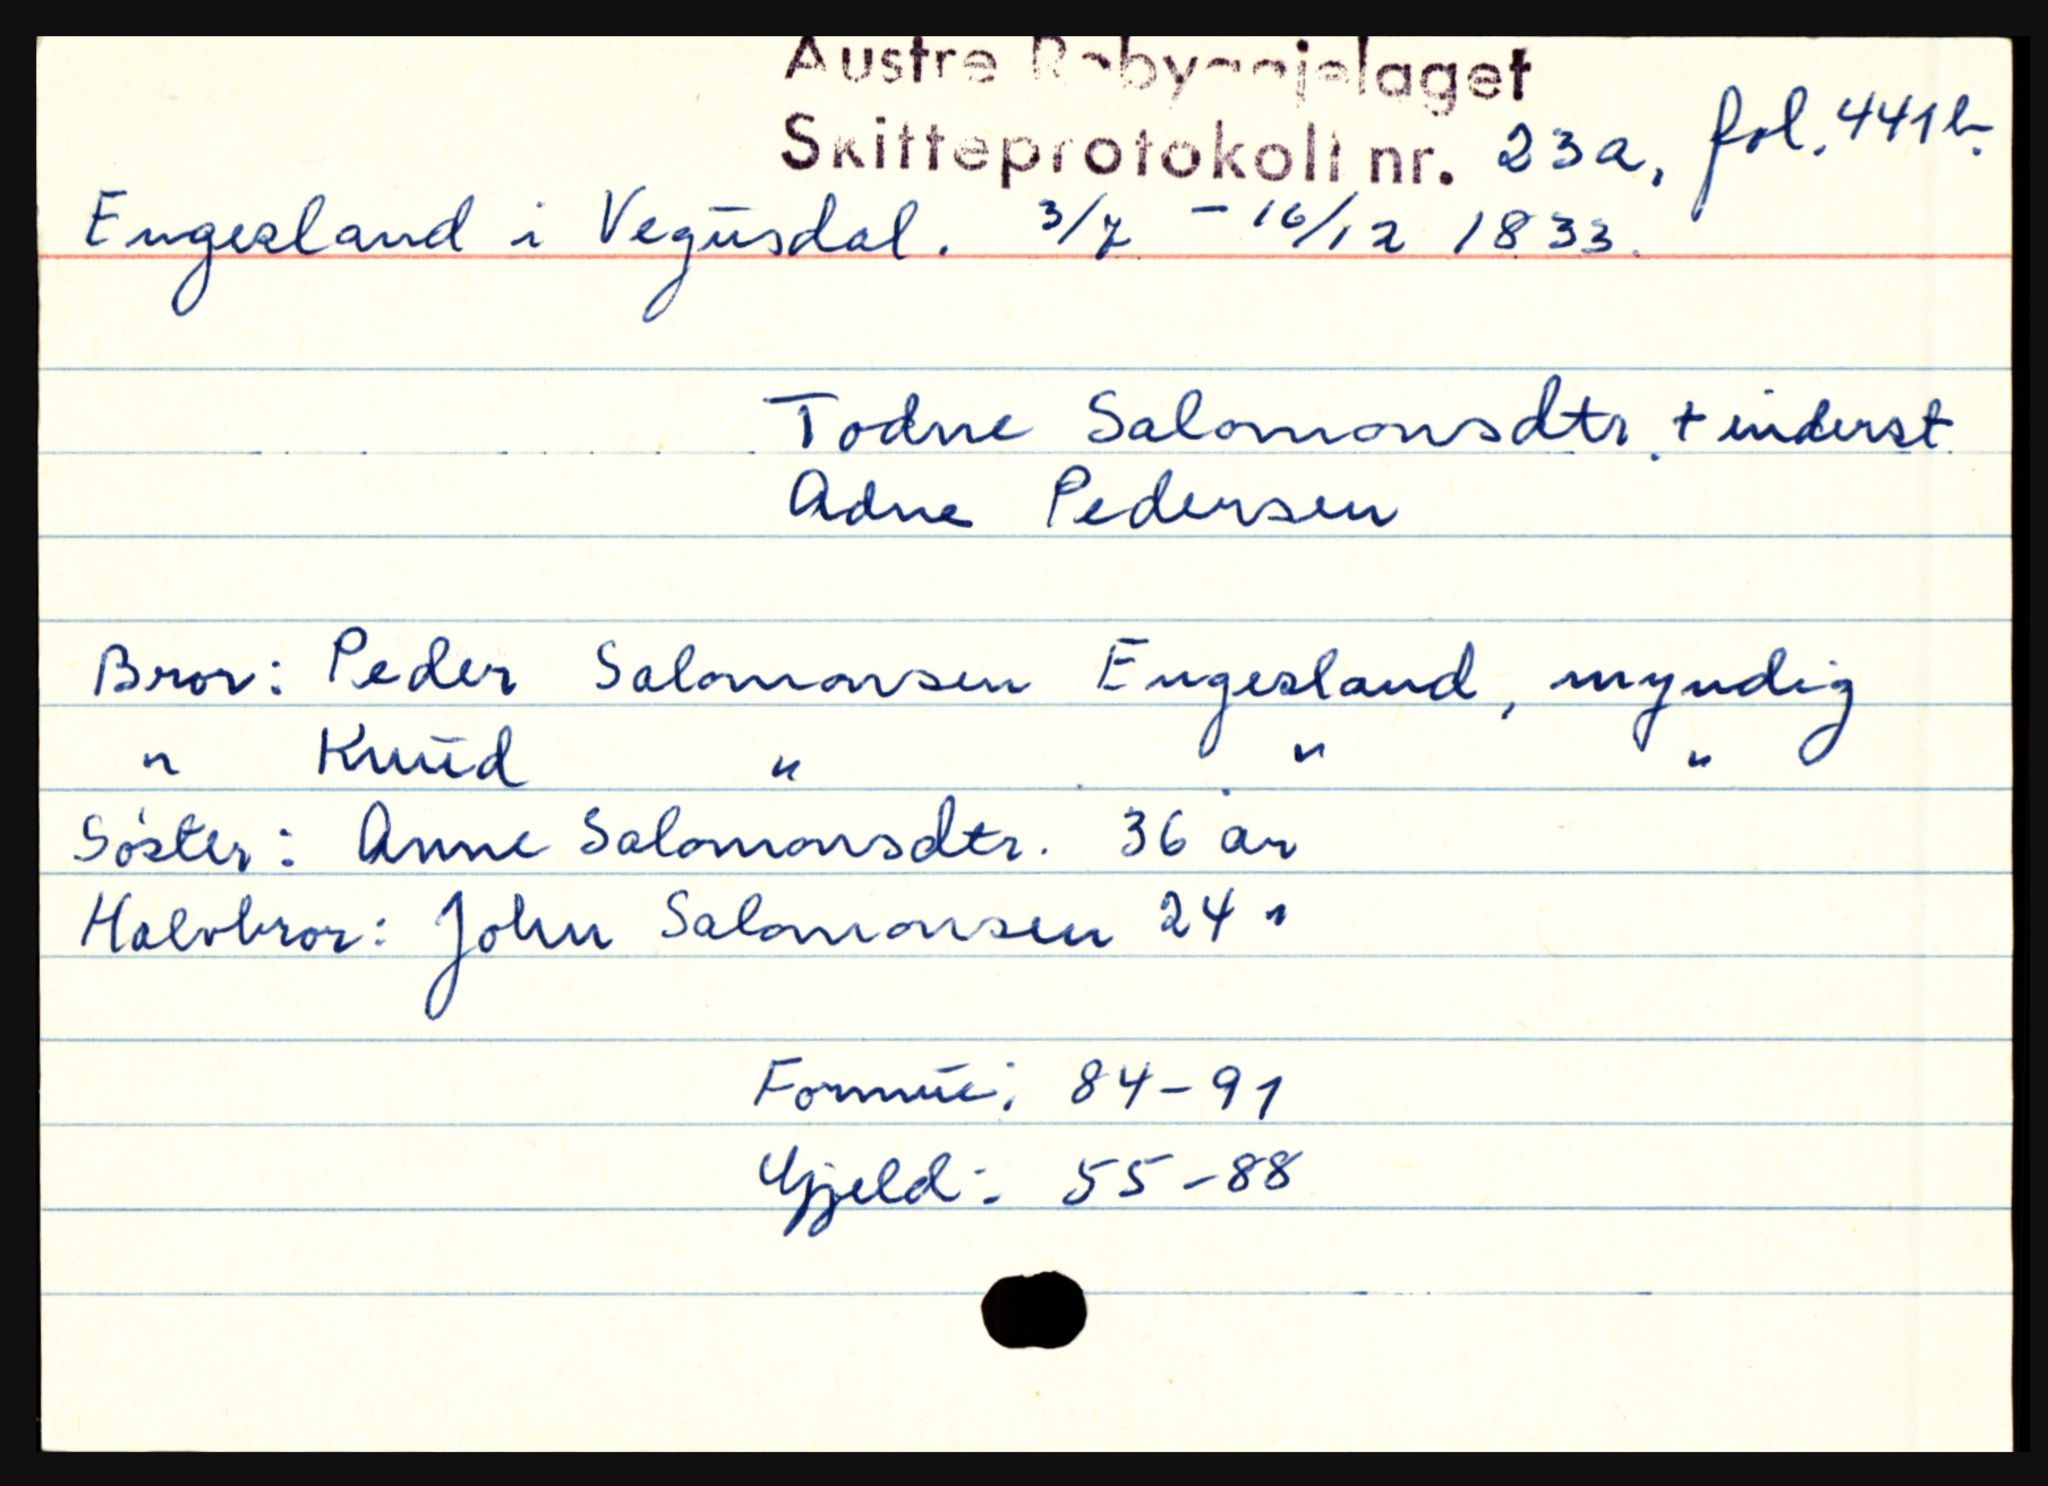 Austre Råbyggjelaget
Skifteprotokoll nr. 23a, fol. 441b.
Engesland i Vegusdal. 3/7 - 16/12 1833.
Todne Salomonsdtr. + inderst
Adne Pedersen
Bror: Peder Salomonsen Engesland, myndig
" Knud " " "
Söster: Anne Salomonsdtr. 36 år
Halvbror: John Salomonsen 24 "
Formue: 84-91
Gjeld: 55-88